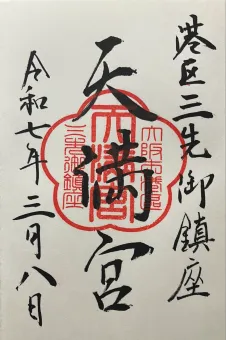 港区三先御鎮座
天満宮
令和七年三月八日
天満宮
三先御鎮座